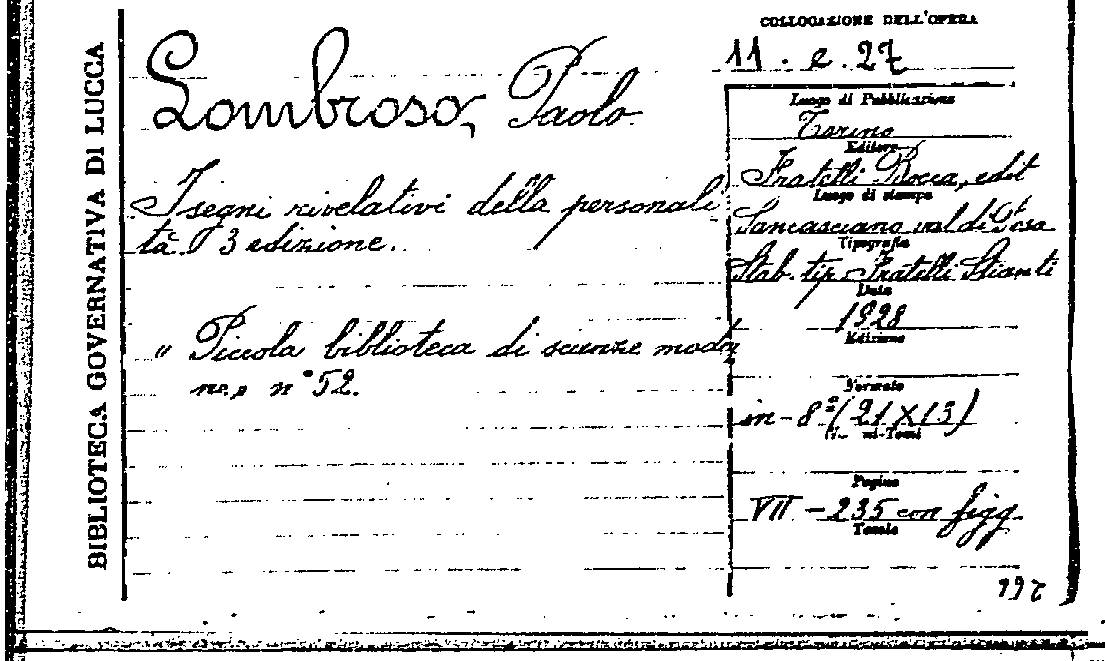 BIBLIOTECA GOVERNATIVA DI LUCCA
Lombroso, Paolo
I segni rivelativi della personali
tà 3 edizione.
" Piccola biblioteca di scienze moder
ne, n° 52.
COLLOCAZIONE DELL'OPERA
11. e. 27
Luogo di Pubblicazione
Torino
Editore
Fratelli Bocca, edit
Luogo di stampa
Sancasciano val di Pesa
Tipografia
Stab. tip. Fratelli Stianti
Data
1928
Edizione
Formato
in-8° (21X13)
Pagine
VII - 235 con figg.
Tavole